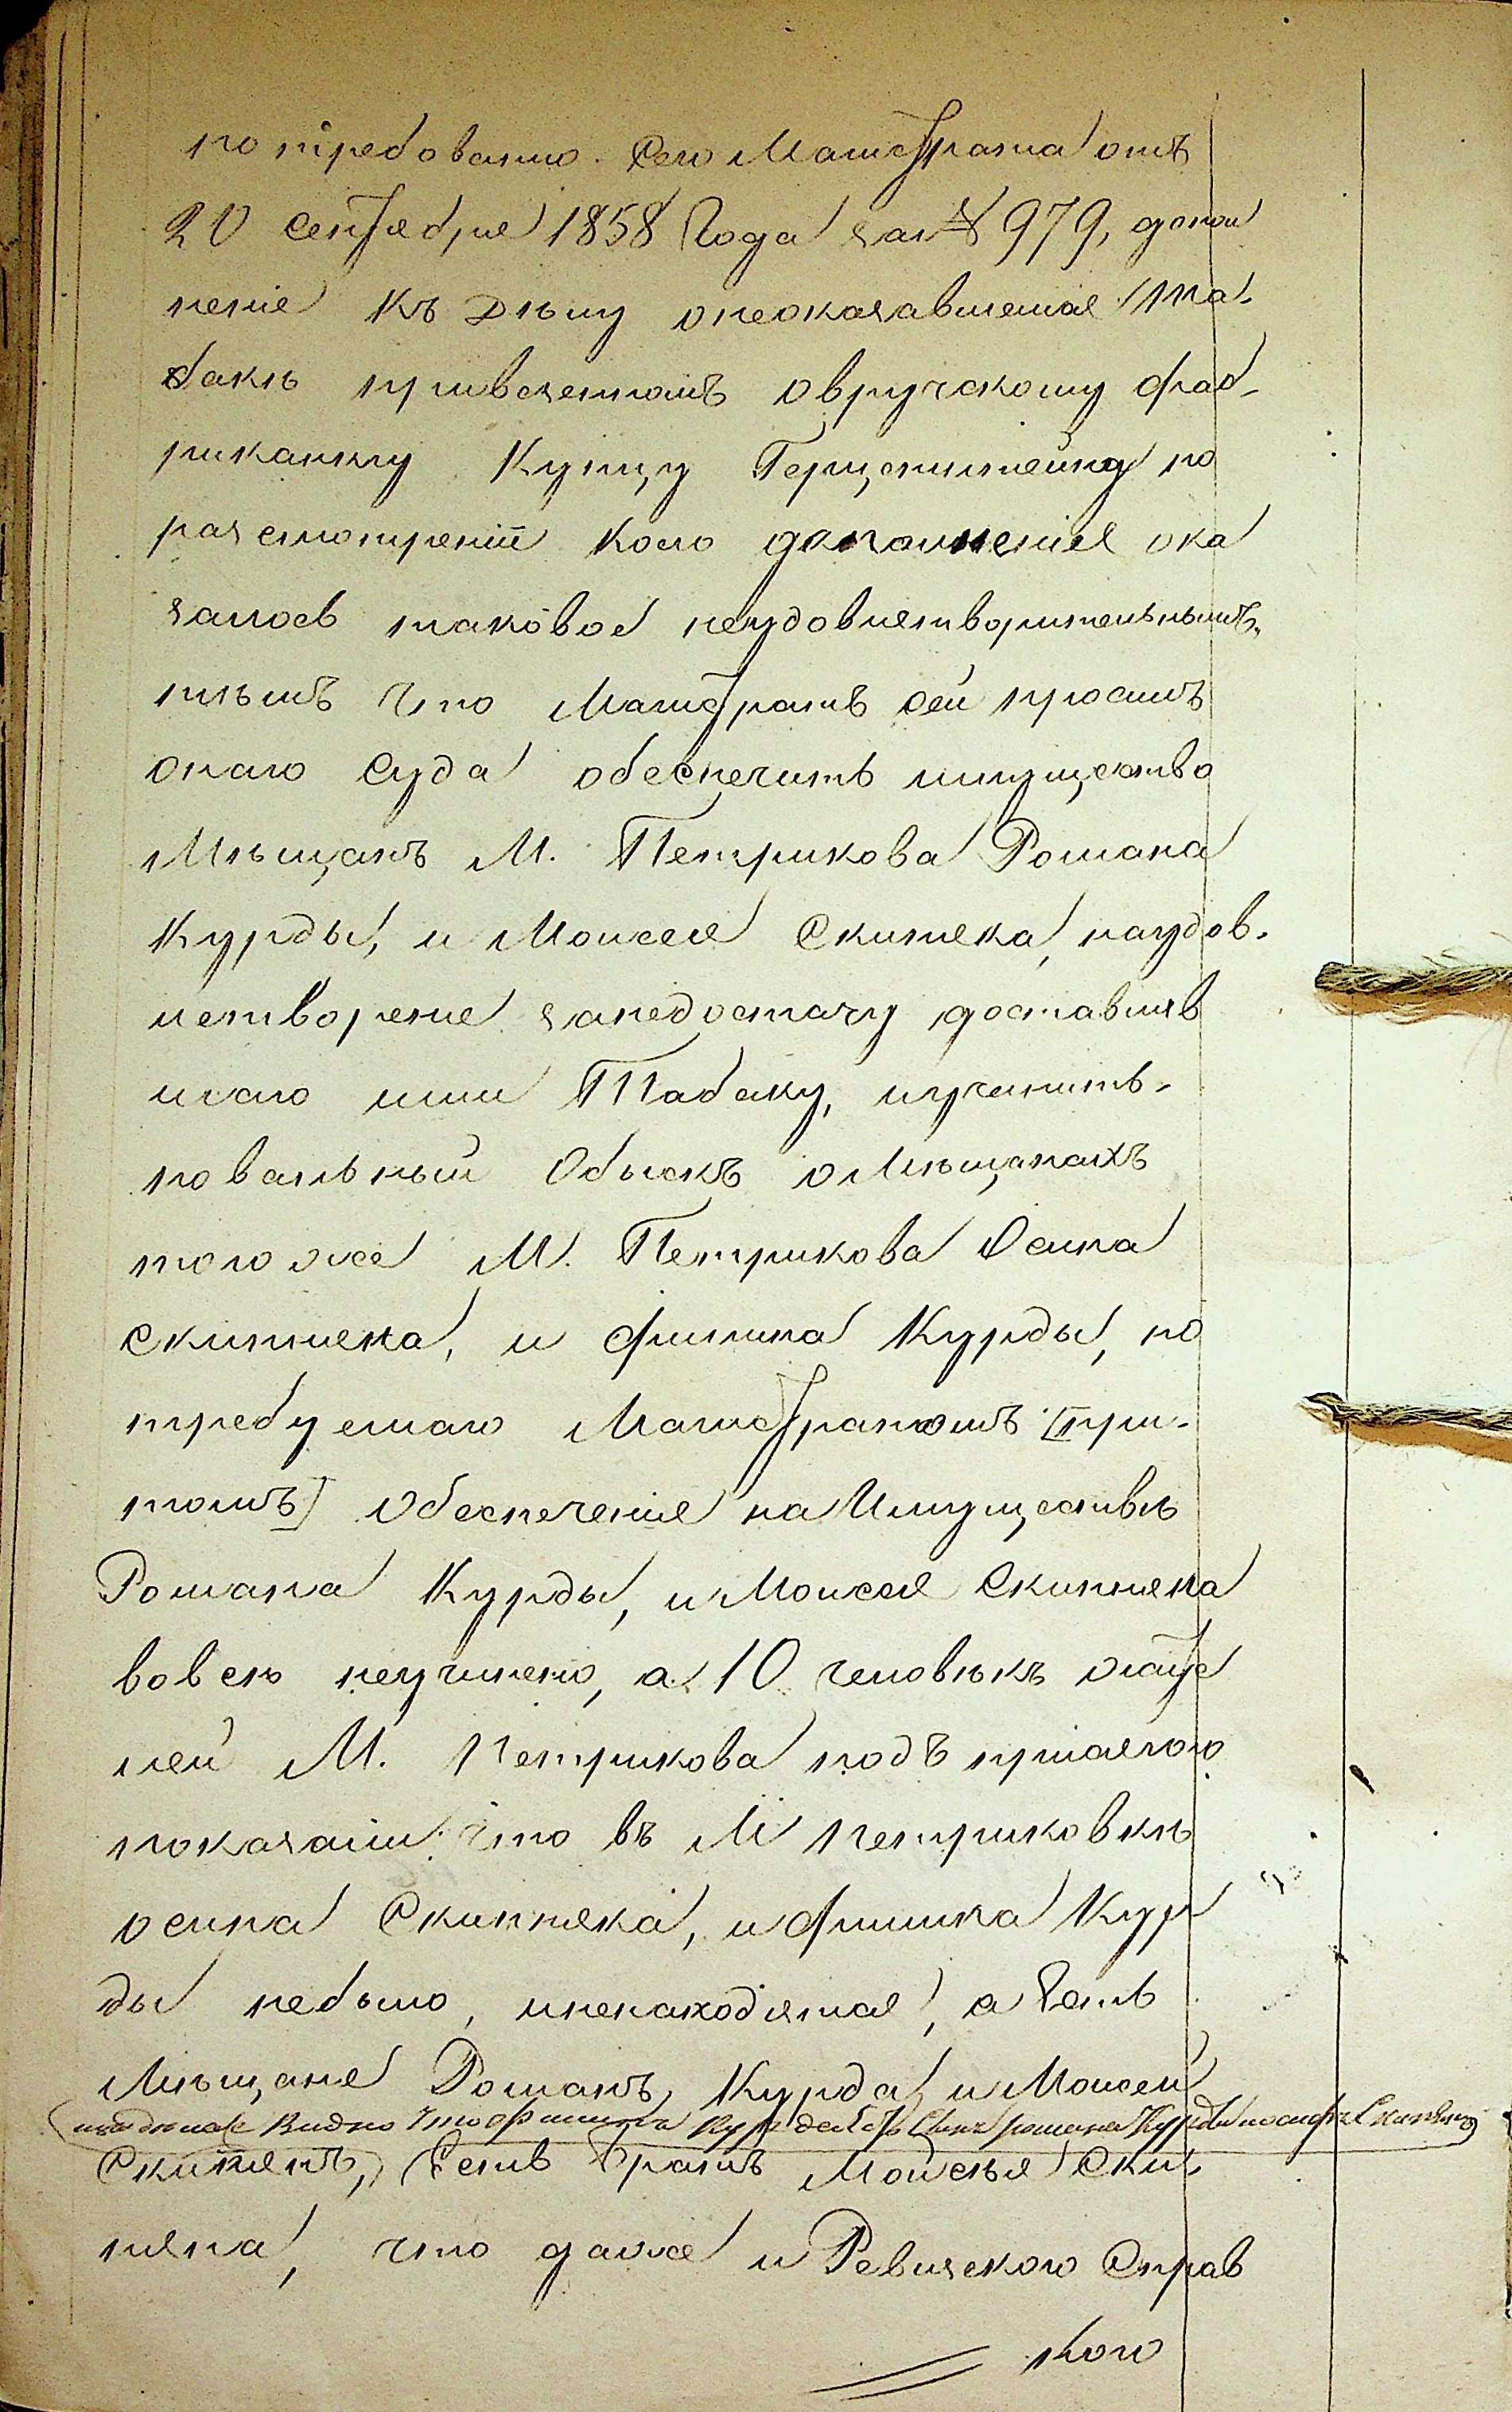 по требованию Сего Магистрата отъ
20 Сентября 1858 Года за № 979, допол
неніе къ Дѣлу онеоказавшемся Та-
бакѣ привезенномъ овручскому фаб-
риканту Купцу Герценштейну по
разсмотреніи коего дополненія ока
залось таковое неудовлетворительнымъ,
тѣмъ что Магистратъ сей просилъ
онаго Суда обеспечить имущество
Мѣщанъ М. Петрикова Романа
Курды, и Моисея Скитяка, наудов-
летвореніе занедостачу доставляв
шаго ими Табаку, иучинить-
повальный Обыскъ оМѣщанахъ
тогоже М. Петрикова Осипа
Скитяка, и Филипа Курды, но
требуемаго Магистратомъ [при-
томъ] Обеспеченія наИмуществѣ
Романа Курды, иМоисея Скитяка
вовсѣ неучинено, а 10 человѣкъ жите
лей М. Петрикова подъ присягою
показали: что въ М. Петриковкѣ
осипа Скитяка, иФилипа Кур
ды небыло, иненаходятся, а Есть
Мѣщане Романъ Курда и Моисей
видно что Филипа Курда Сынъ романа Курды иосипъ Скитякъ
Скитякъ, Есть братъ Моисѣя Ски-
тяка, что даже и Ревизского Справ
кого